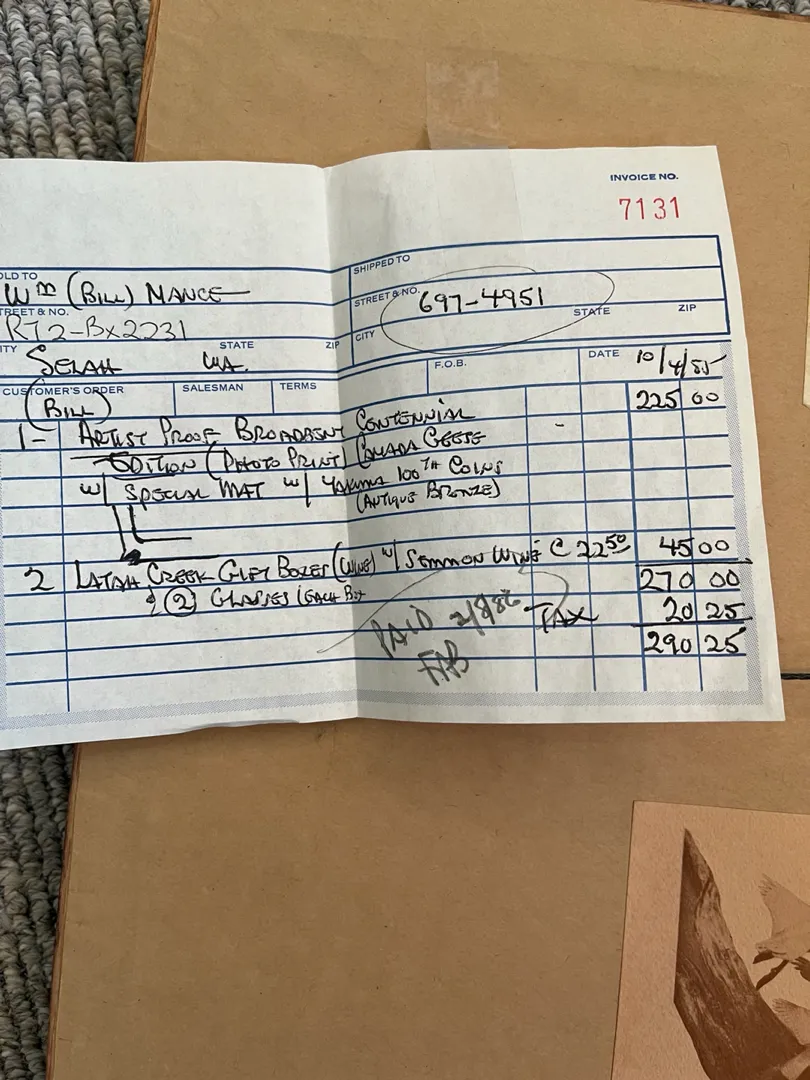 INVOICE NO.
7131
OLD TO
Wm (BILL) NANCE
SHIPPED TO
TREET & NO.
RT2-Bx2231
STREET & NO.
697-4951
ITY
STATE
ZIP
SELAH WA.
CITY
STATE
ZIP
CUSTOMER'S ORDER
SALESMAN
TERMS
F.O.B.
DATE
10/4/85
(BILL)
1- ARTIST PROOF BROADBENT CENTENNIAL 225 00
EDITION (PHOTO PRINT) CANADA GEESE
w/ SPECIAL MAT w/ YAKIMA 100TH COINS
(ANTIQUE BRONZE)
2 LATAH CREEK GIFT BOXES (WINE) w/ SEMMON WINE @ 22 50 45 00
& (2) GLASSES (EACH BX 270 00
PAID 2/8/86 TAX 20 25
FAB 290 25